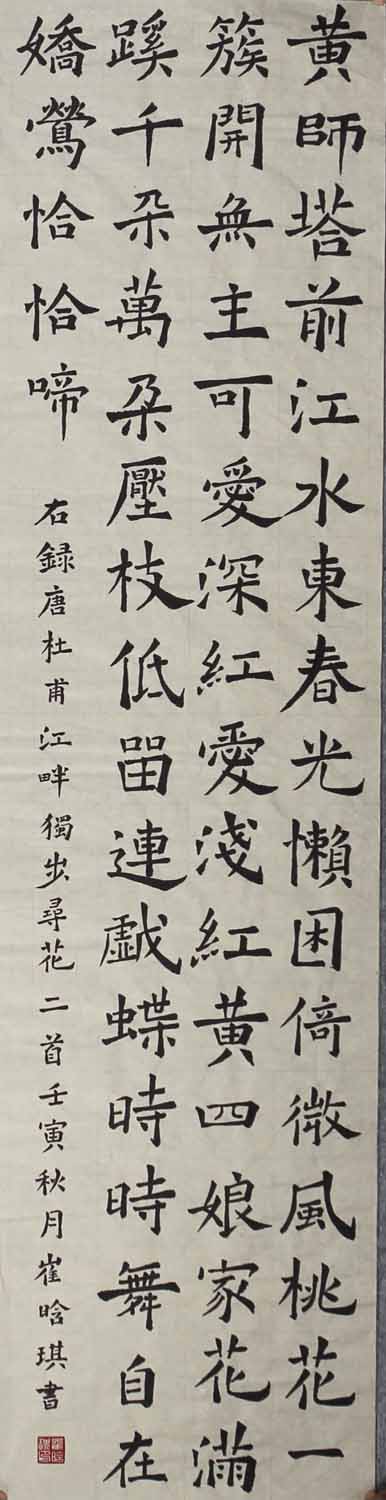 黄師塔前江水東春光懶困倚微風桃花一
簇開無主可愛深紅愛淺紅黄四娘家花滿
蹊千朵萬朵壓枝低留連戯蝶時時舞自在
嬌鶯恰恰啼
右録唐杜甫江畔獨步尋花二首壬寅秋月崔晗琪書